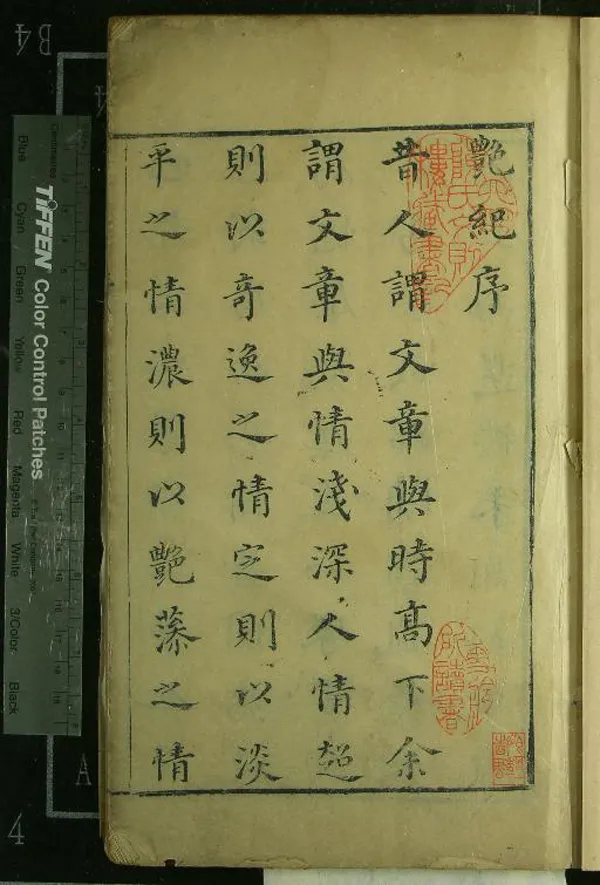 艷紀序
昔人謂文章與時高下余
謂文章與情淺深人情超
則以奇逸之情定則以淡
平之情濃則以艷藻之情
B4
A
4
Centimetres
TIFFEN Color Control Patches
Blue
Cyan
Green
Yellow
Red
Magenta
White
3/Color
Black